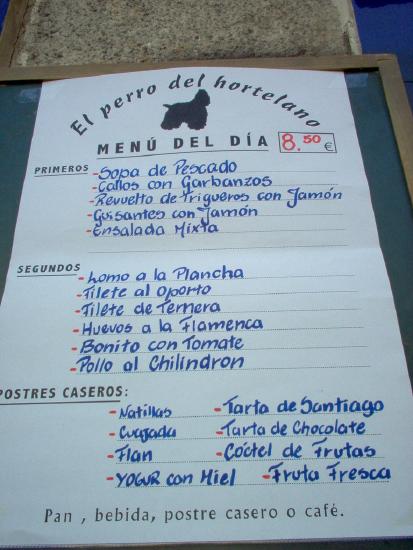 El perro del hortelano
MENÚ DEL DÍA 8.50 €
PRIMEROS - Sopa de Pescado
- Callos con Garbanzos
- Revuelto de Trigueros con Jamón
- Guisantes con Jamón
- Ensalada Mixta
SEGUNDOS
- Lomo a la Plancha
- Filete al Oporto
- Filete de Ternera
- Huevos a la Flamenca
- Bonito con Tomate
- Pollo al Chilindron
POSTRES CASEROS:
- Natillas - Tarta de Santiago
- Cuajada - Tarta de Chocolate
- Flan - Cóctel de Frutas
- YOGUR con Miel - Fruta Fresca
Pan , bebida, postre casero o café.